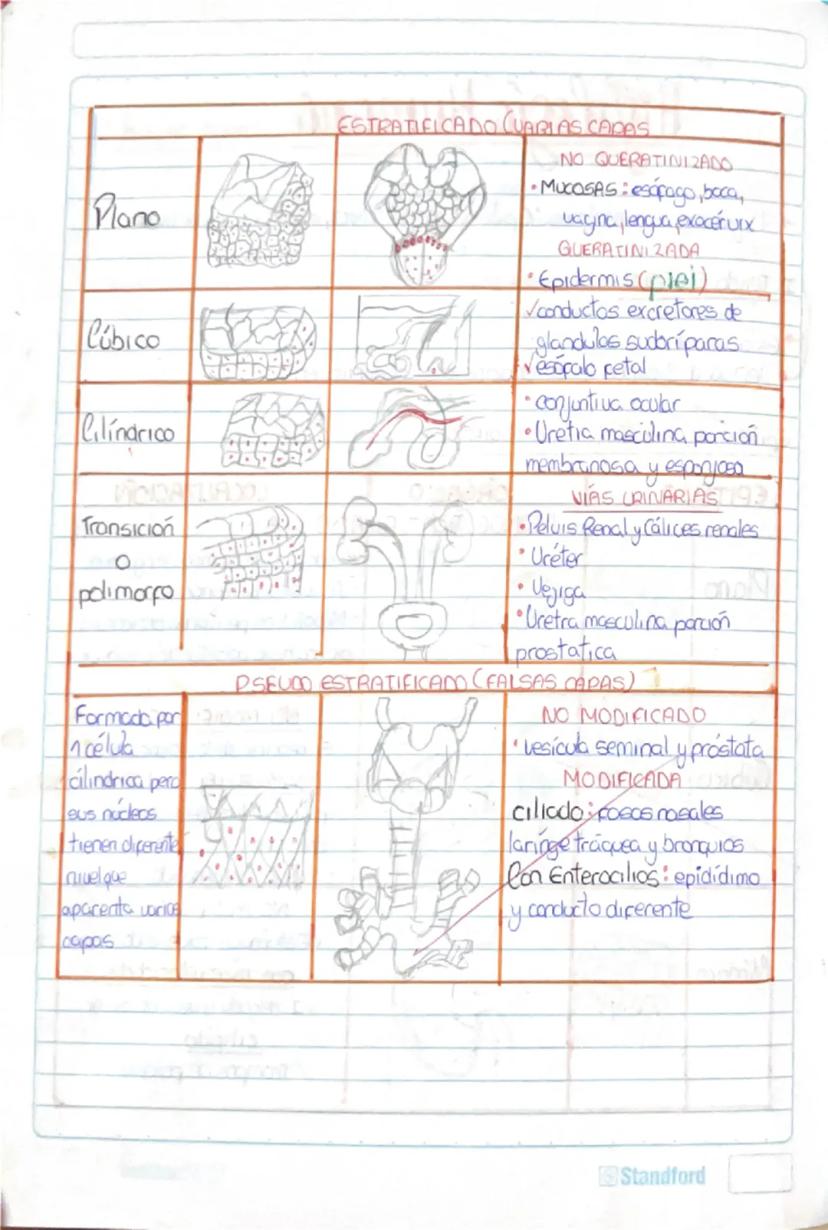 ESTRATIFICADO (VARIAS CAPAS
Plano
NO QUERATINIZADO
• MUCOSAS : esófago, boca,
vagina, lengua, exocérvix
QUERATINIZADA
• Epidermis (piel)
Cúbico
✓conductos excretores de
glandulas sudoríparas
✓esófalo fetal
Cilíndrico
• conjuntiva ocular
• Uretra masculina porción
membranosa y esponjosa
Transición
o
polimorfo
VÍAS URINARIAS
• Pelvis Renal y Cálices renales
• Uréter
• Vejiga
• Uretra masculina porción
prostatica
PSEUDO ESTRATIFICADO (FALSAS CAPAS)
Formada por
1 célula
cilindrica pero
sus núcleos
tienen diferente
nivel que
aparenta varias
capas
NO MODIFICADO
• vesícula seminal y próstata
MODIFICADA
ciliado : fosas nasales
laringe tráquea y bronquios
Con Enterocilios : epidídimo
y conducto diferente
Standford